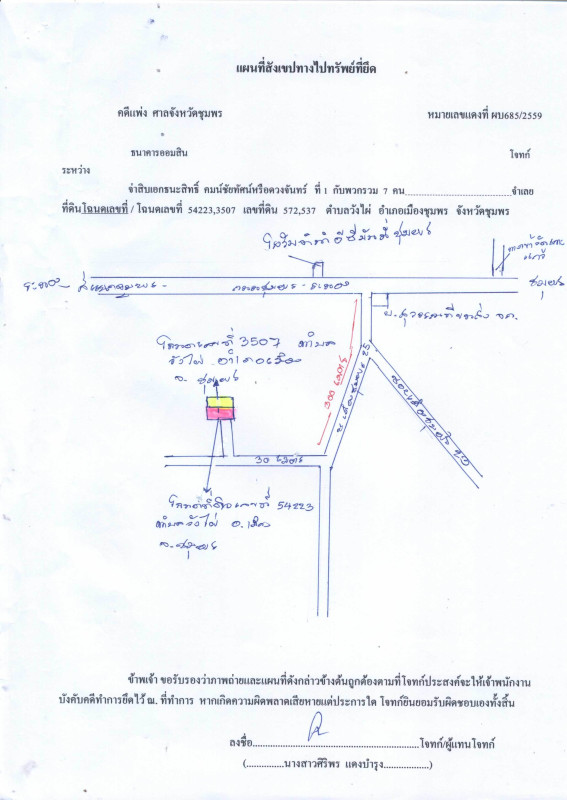 แผนที่สังเขปทางไปทรัพย์ที่ยึด
คดีแพ่ง ศาลจังหวัดชุมพร หมายเลขแดงที่ ผบ685/2559
ธนาคารออมสิน โจทก์
ระหว่าง
จ่าสิบเอกธนะสิทธิ์ คมน์ชัยทัศน์หรือดวงจันทร์ ที่ 1 กับพวกรวม 7 คน จำเลย
ที่ดินโฉนดเลขที่ / โฉนดเลขที่ 54223,3507 เลขที่ดิน 572,537 ตำบลวังไผ่ อำเภอเมืองชุมพร จังหวัดชุมพร
ชุมพร
ระนอง
ถนนชุมพร - ระนอง
ชุมพร
โฉนดเลขที่ 3507 ตำบล
วังไผ่ อำเภอเมือง
จ. ชุมพร
300 เมตร
25
30 เมตร
54223
ตำบลวังไผ่ อ.เมือง
จ.ชุมพร
ข้าพเจ้า ขอรับรองว่าภาพถ่ายและแผนที่ดังกล่าวข้างต้นถูกต้องตามที่โจทก์ประสงค์จะให้เจ้าพนักงาน
บังคับคดีทำการยึดไว้ ณ. ที่ทำการ หากเกิดความผิดพลาดเสียหายแต่ประการใด โจทก์ยินยอมรับผิดชอบเองทั้งสิ้น
ลงชื่อ........................................................โจทก์/ผู้แทนโจทก์
(..............นางสาวศิริพร แดงบำรุง.................)